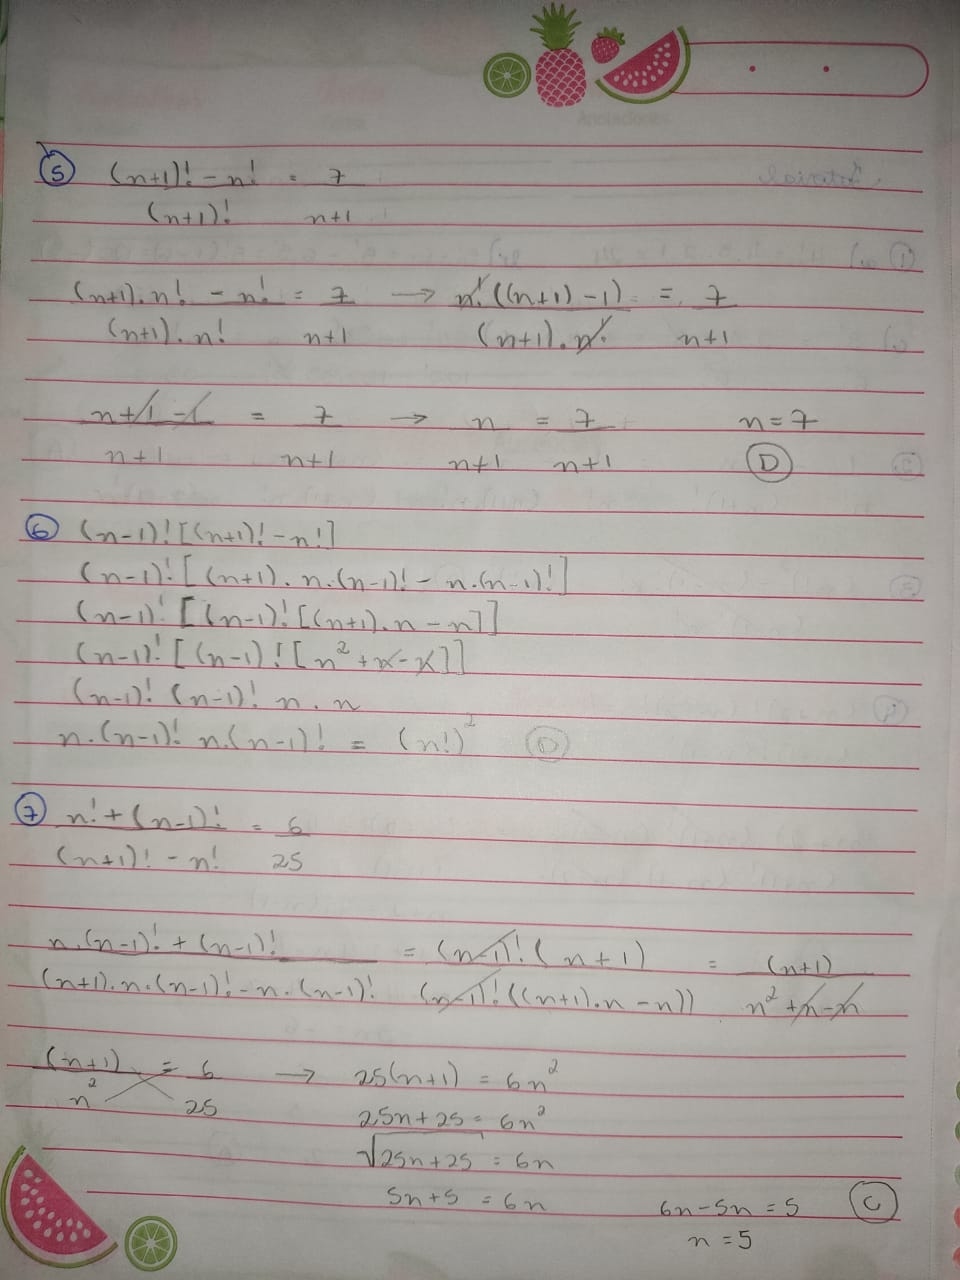 5 (n+1)! - n! = 7
(n+1)! n+1
(n+1).n! - n! = 7 → n!((n+1)-1) = 7
(n+1).n! n+1 (n+1).n! n+1
n+1-1 = 7 → n = 7 n=7
n+1 n+1 n+1 n+1 D
6 (n-1)![(n+1)!-n!]
(n-1)![(n+1).n.(n-1)! - n.(n-1)!]
(n-1)![(n-1)![(n+1).n - n]]
(n-1)![(n-1)![n²+n-n]]
(n-1)!(n-1)! n.n
n.(n-1)! n.(n-1)! = (n!)² D
7 n!+(n-1)! = 6
(n+1)! - n! 25
n.(n-1)! + (n-1)! = (n-1)!(n+1) = (n+1)
(n+1).n.(n-1)! - n.(n-1)! (n-1)!((n+1).n - n)) n²+n-n
(n+1) = 6 → 25(n+1) = 6n²
n² 25
25n+25 = 6n²
√25n+25 = 6n
5n+5 = 6n 6n-5n = 5 C
n = 5